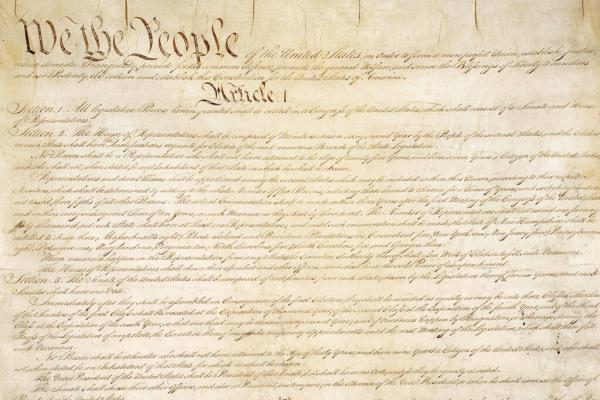 We the People of the United States, in Order to form a more perfect Union, establish Justice,
insure domestic Tranquility, provide for the common defence, promote the general Welfare, and secure the Blessings of Liberty to ourselves
and our Posterity, do ordain and establish this Constitution for the United States of America.
Article. I.
Section. 1. All legislative Powers herein granted shall be vested in a Congress of the United States, which shall consist of a Senate and House
of Representatives.
Section. 2. The House of Representatives shall be composed of Members chosen every second Year by the People of the several States, and the Electors
in each State shall have Qualifications requisite for Electors of the most numerous Branch of the State Legislature.
No Person shall be a Representative who shall not have attained to the Age of twenty five Years, and been seven Years a Citizen of the United States,
and who shall not, when elected, be an Inhabitant of that State in which he shall be chosen.
Representatives and direct Taxes shall be apportioned among the several States which may be included within this Union, according to their respective
Numbers, which shall be determined by adding to the whole Number of free Persons, including those bound to Service for a Term of Years, and excluding Indians
not taxed, three fifths of all other Persons. The actual Enumeration shall be made within three Years after the first Meeting of the Congress of the United States,
and within every subsequent Term of ten Years, in such Manner as they shall by Law direct. The Number of Representatives shall not exceed one for every
thirty Thousand, but each State shall have at Least one Representative; and until such enumeration shall be made, the State of New Hampshire shall be
entitled to chuse three, Massachusetts eight, Rhode Island and Providence Plantations one, Connecticut five, New York six, New Jersey four, Pennsylvania
eight, Delaware one, Maryland six, Virginia ten, North Carolina five, South Carolina five, and Georgia three.
When vacancies happen in the Representation from any State, the Executive Authority thereof shall issue Writs of Election to fill such Vacancies.
The House of Representatives shall chuse their Speaker and other Officers; and shall have the sole Power
Section. 3. The Senate of the United States shall be composed of two Senators from each State, chosen by the Legislature thereof, for six Years; and each
Senator shall have one Vote.
Immediately after they shall be assembled in Consequence of the first Election, they shall be divided as equally as may be into three Classes. The Seats
of the Senators of the first Class shall be vacated at the Expiration of the second Year, of the second Class at the Expiration of the fourth Year, and of the third
Class at the Expiration of the sixth Year, so that one third may be chosen every second Year; and if Vacancies happen by Resignation, or otherwise, during the
Recess of the Legislature of any State, the Executive thereof may make temporary Appointments until the next Meeting of the Legislature, which shall then fill
such Vacancies.
No Person shall be a Senator who shall not have attained to the Age of thirty Years, and been nine Years a Citizen of the United States, and who shall
not, when elected, be an Inhabitant of that State for which he shall be chosen.
The Vice President of the United States shall be President of the Senate, but shall have no Vote, unless they be equally divided.
The Senate shall chuse their other Officers, and also a President pro tempore, in the Absence of the Vice President, or when he shall exercise the Office of